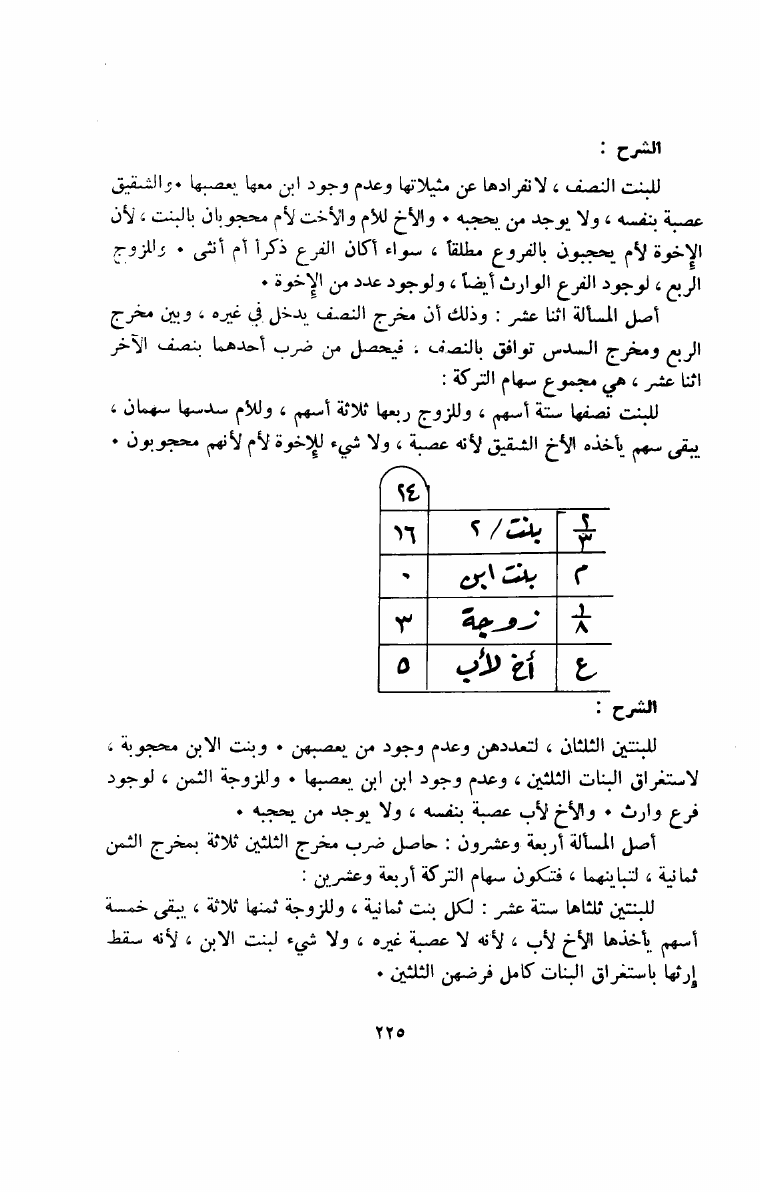 الشرح :
للبنت النصف ، لانفرادها عن مثيلاتها وعدم وجود ابن معها يعصبها . والشقيق
عصبة بنفسه ، ولا يوجد من يحجبه . والأخ للأم والأخت لأم محجوبان بالبنت ، لأن
الإخوة لأم يحجبون بالفروع مطلقاً ، سواء أكان الفرع ذكراً أم أنثى . وللزوج
الربع ، لوجود الفرع الوارث أيضاً ، ولوجود عدد من الإخوة .
أصل المسألة اثنا عشر : وذلك أن مخرج النصف يدخل في غيره ، وبين مخرج
الربع ومخرج السدس توافق بالنصف . فيحصل من ضرب أحدهما بنصف الآخر
اثنا عشر ، هي مجموع سهام التركة :
للبنت نصفها ستة أسهم ، وللزوج ربعها ثلاثة أسهم ، وللأم سدسها سهمان ،
يبقى سهم يأخذه الأخ الشقيق لأنه عصبة ، ولا شيء للإخوة لأم لأنهم محجوبون .
٢٤
٢/٣ بنت / ٢ ١٦
م بنت ابن ٠
١/٨ زوجة ٣
ع أخ لأب ٥
الشرح :
للبنتين الثلثان ، لتعددهن وعدم وجود من يعصبهن . وبنت الابن محجوبة ،
لاستغراق البنات الثلثين ، وعدم وجود ابن ابن يعصبها . وللزوجة الثمن ، لوجود
فرع وارث . والأخ لأب عصبة بنفسه ، ولا يوجد من يحجبه .
أصل المسألة أربعة وعشرون : حاصل ضرب مخرج الثلثين ثلاثة بمخرج الثمن
ثمانية ، لتباينهما ، فتكون سهام التركة أربعة وعشرين :
للبنتين ثلثاها ستة عشر : لكل بنت ثمانية ، وللزوجة ثمنها ثلاثة ، يبقى خمسة
أسهم يأخذها الأخ لأب ، لأنه لا عصبة غيره ، ولا شيء لبنت الابن ، لأنه سقط
إرثها باستغراق البنات كامل فرضهن الثلثين .
٢٢٥